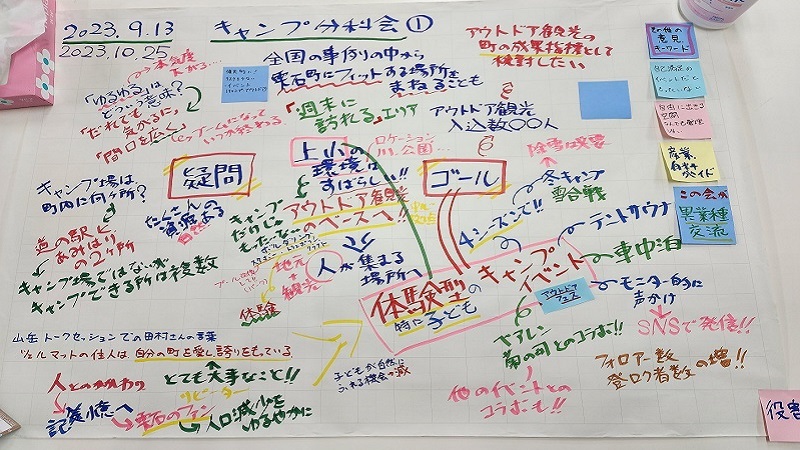 2023.9.13
2023.10.25
キャンプ分科会①
全国の事例の中から
雫石町にフィットする場所を
まねることも
アウトドア観光の
町の成果指標として
検討したい
「ゆるゆる」は
どういう意味?
「だれでも
気がるに」
「間口を広く」
「週末に
訪れる」エリア
アウトドア観光
入込数〇〇人
ロケーション
川、公園…
疑問
上小の
環境は
すばらしい!!
ゴール
除雪は必要
冬キャンプ
雪合戦
4シーズンで!!
テントサウナ
車中泊
キャンプ場は
町内に何ヶ所?
道の駅と
あみはりの
2ヶ所
キャンプ場ではないが
キャンプできる所は複数
たくさんの
資源ある
キャンプ
だけじゃ
もったいない
アウトドア観光
のベースへ!!
人が集まる
場所へ
地元+観光
体験
体験型の
特に子ども
キャンプ
イベント
アウトドア
フェス
モニター的に
声かけ
SNSで発信!!
フォロアー数
登ロク者数の増!!
菊の司とのコラボ!!
他のイベントとの
コラボも!!
山岳トークセッションでの田村さんの言葉
ツェルマットの住人は自分の町を愛し誇りをもっている
とても大事なこと!!
人とのかかわり
記憶へ
リピーター
雫石のファン
人口減少を
ゆるやかに
子どもが自然に
ふれる機会の減
その他の
意見、
キーワード
産業、
この会が
異業種
交流